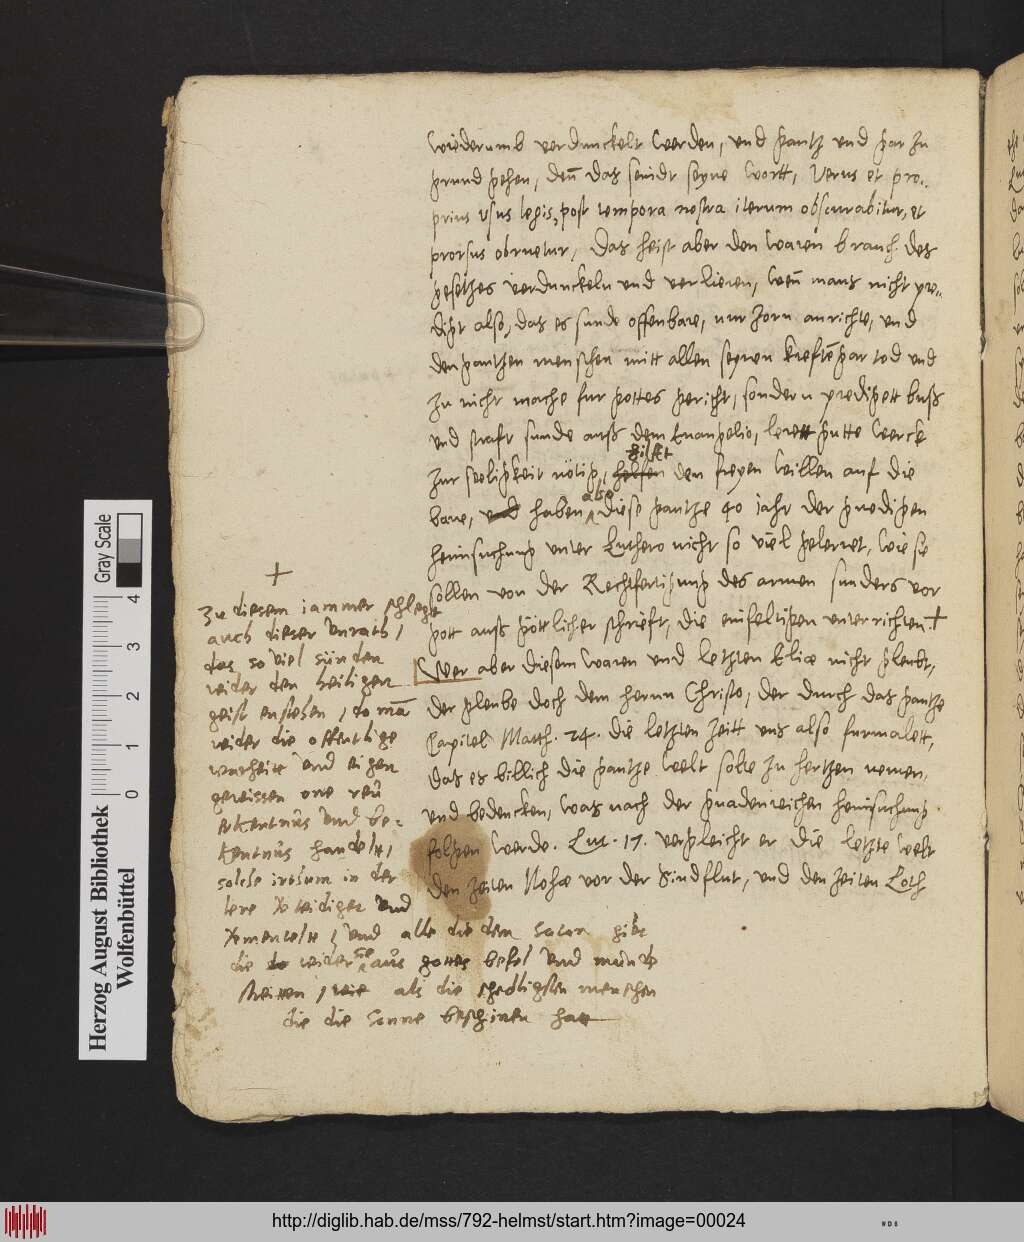 wiederumb verdunckelt werden, und gantz und gar zu
grund gehen, deñ das seindt seyne wortt, Verus et pro-
prius usus legis, post tempora nostra iterum obscurabitur, et
prorsus obruetur, Das heist aber den waren brauch des
gesetzes verdunckeln und verlieren, weñ mans nicht pre-
digt also, das es sunde offenbare, nur zorn anrichte, und
den gantzen menschen mitt allen seynen kreften gar tod und
zu nicht mache fur gottes gericht, sondern predigett buß
und straft sunde auß dem Euangelio, lerett gutte werck
hilfft
zur seeligkeit nötig, helfen den freyen willen auf die
also
bane, und haben diese gantze 40 jahr der predigen
heimsuchung unter Luthero nicht so viel gelernet, wie sie
sollen von der Rechtfertigung des armen sunders vor
gott auß göttlicher schrieft, die einfeltigen unterrichten +
Wer aber diesem waren und letzten Eliæ nicht gleubt,
der gleube doch dem herrn Christo, der durch das gantze
Capitel Matth. 24. die letzten zeitt uns also furmalett,
das es billich die gantze welt solte zu hertzen nemen,
und bedencken, was nach der gnadenreichen heimsuchung
folgen werde. Luc. 17. vergleicht er die letzte welt
den zeiten Nohæ vor der Sindflut, und den zeiten Loth
+
Zu diesem iammer schlegt
auch dieser unrath,
das so viel sünden
wider den heiligen
geist enstehen, so mã
wider die offentlige
warheitt und eigen
gewissen one reü
erkentnüs und be-
kentnüs handelt,
solche irthum in der
lere verteidiget und
vermentelt, und alle die dem Satan hilt
die wider sie aus gottes befel und mund
streitten, als die schedligsten menschen
die die Sonne beschinen hatt
Herzog August Bibliothek
Wolfenbüttel
Gray Scale
0 1 2 3 4
http://diglib.hab.de/mss/792-helmst/start.htm?image=00024